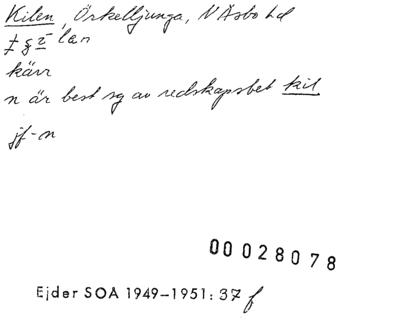 Kilen, Örkelljunga, N Åsbo hd
kärr
n är best sg av redskapsbet kil
jf-n
00028078
Ejder SOA 1949-1951: 37 f